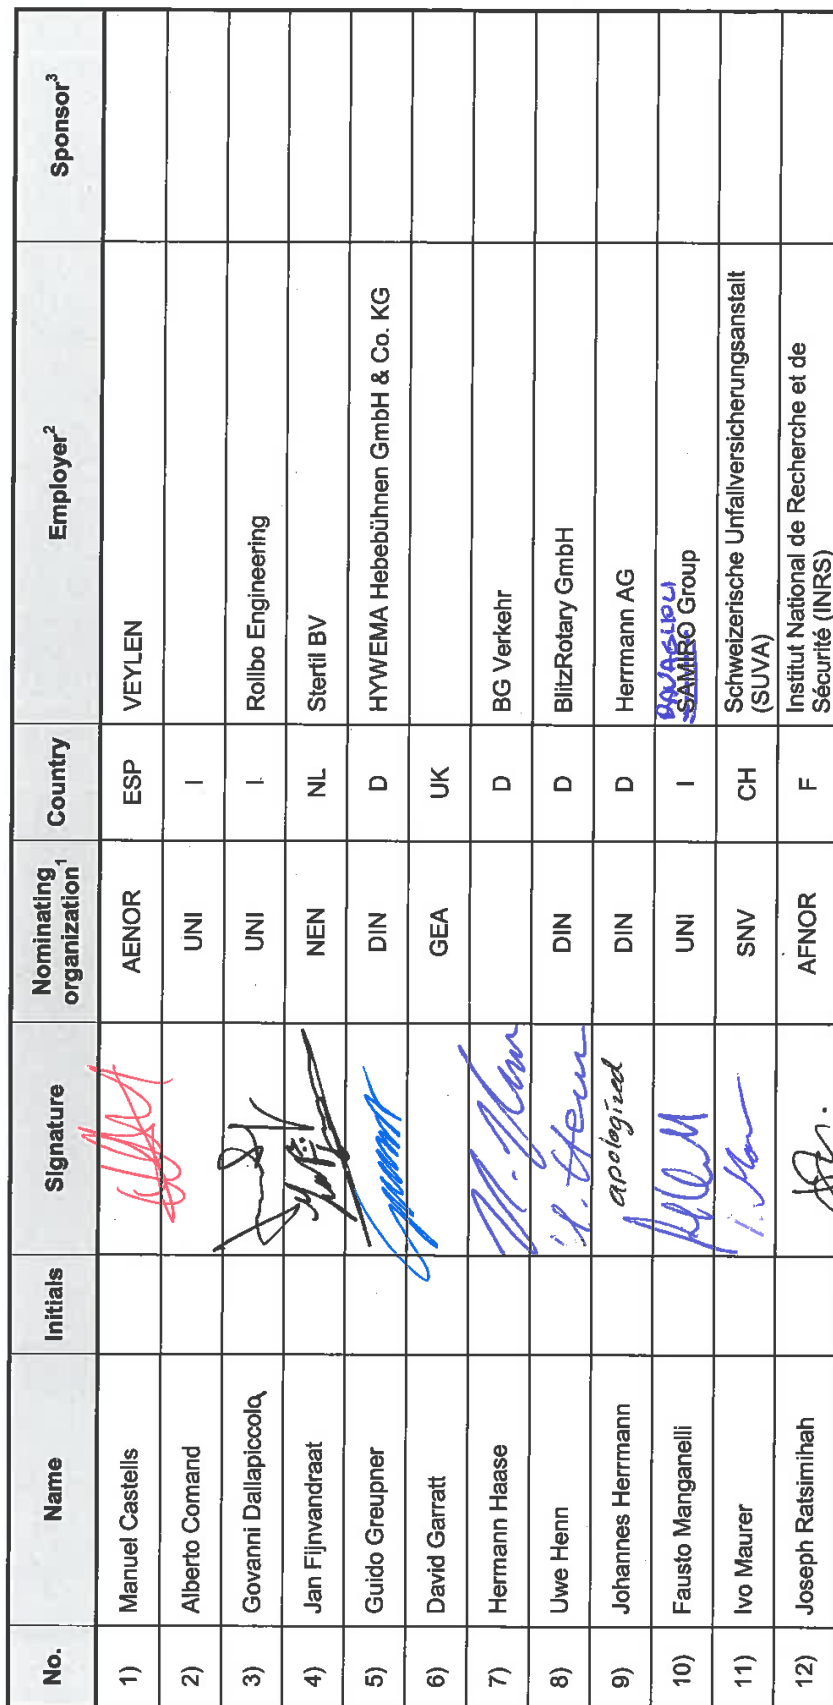 No. Name Initials Signature Nominating organization1 Country Employer2 Sponsor3
1) Manuel Castells AENOR ESP VEYLEN
2) Alberto Comand UNI I
3) Govanni Dallapiccola UNI I Rollbo Engineering
4) Jan Fijnvandraat NEN NL Stertil BV
5) Guido Greupner DIN D HYWEMA Hebebühnen GmbH & Co. KG
6) David Garratt GEA UK
7) Hermann Haase D BG Verkehr
8) Uwe Henn DIN D BlitzRotary GmbH
9) Johannes Herrmann apologized DIN D Herrmann AG
10) Fausto Manganelli UNI I SAMIRO Group
11) Ivo Maurer SNV CH Schweizerische Unfallversicherungsanstalt
(SUVA)
12) Joseph Ratsimihah AFNOR F Institut National de Recherche et de
Sécurité (INRS)